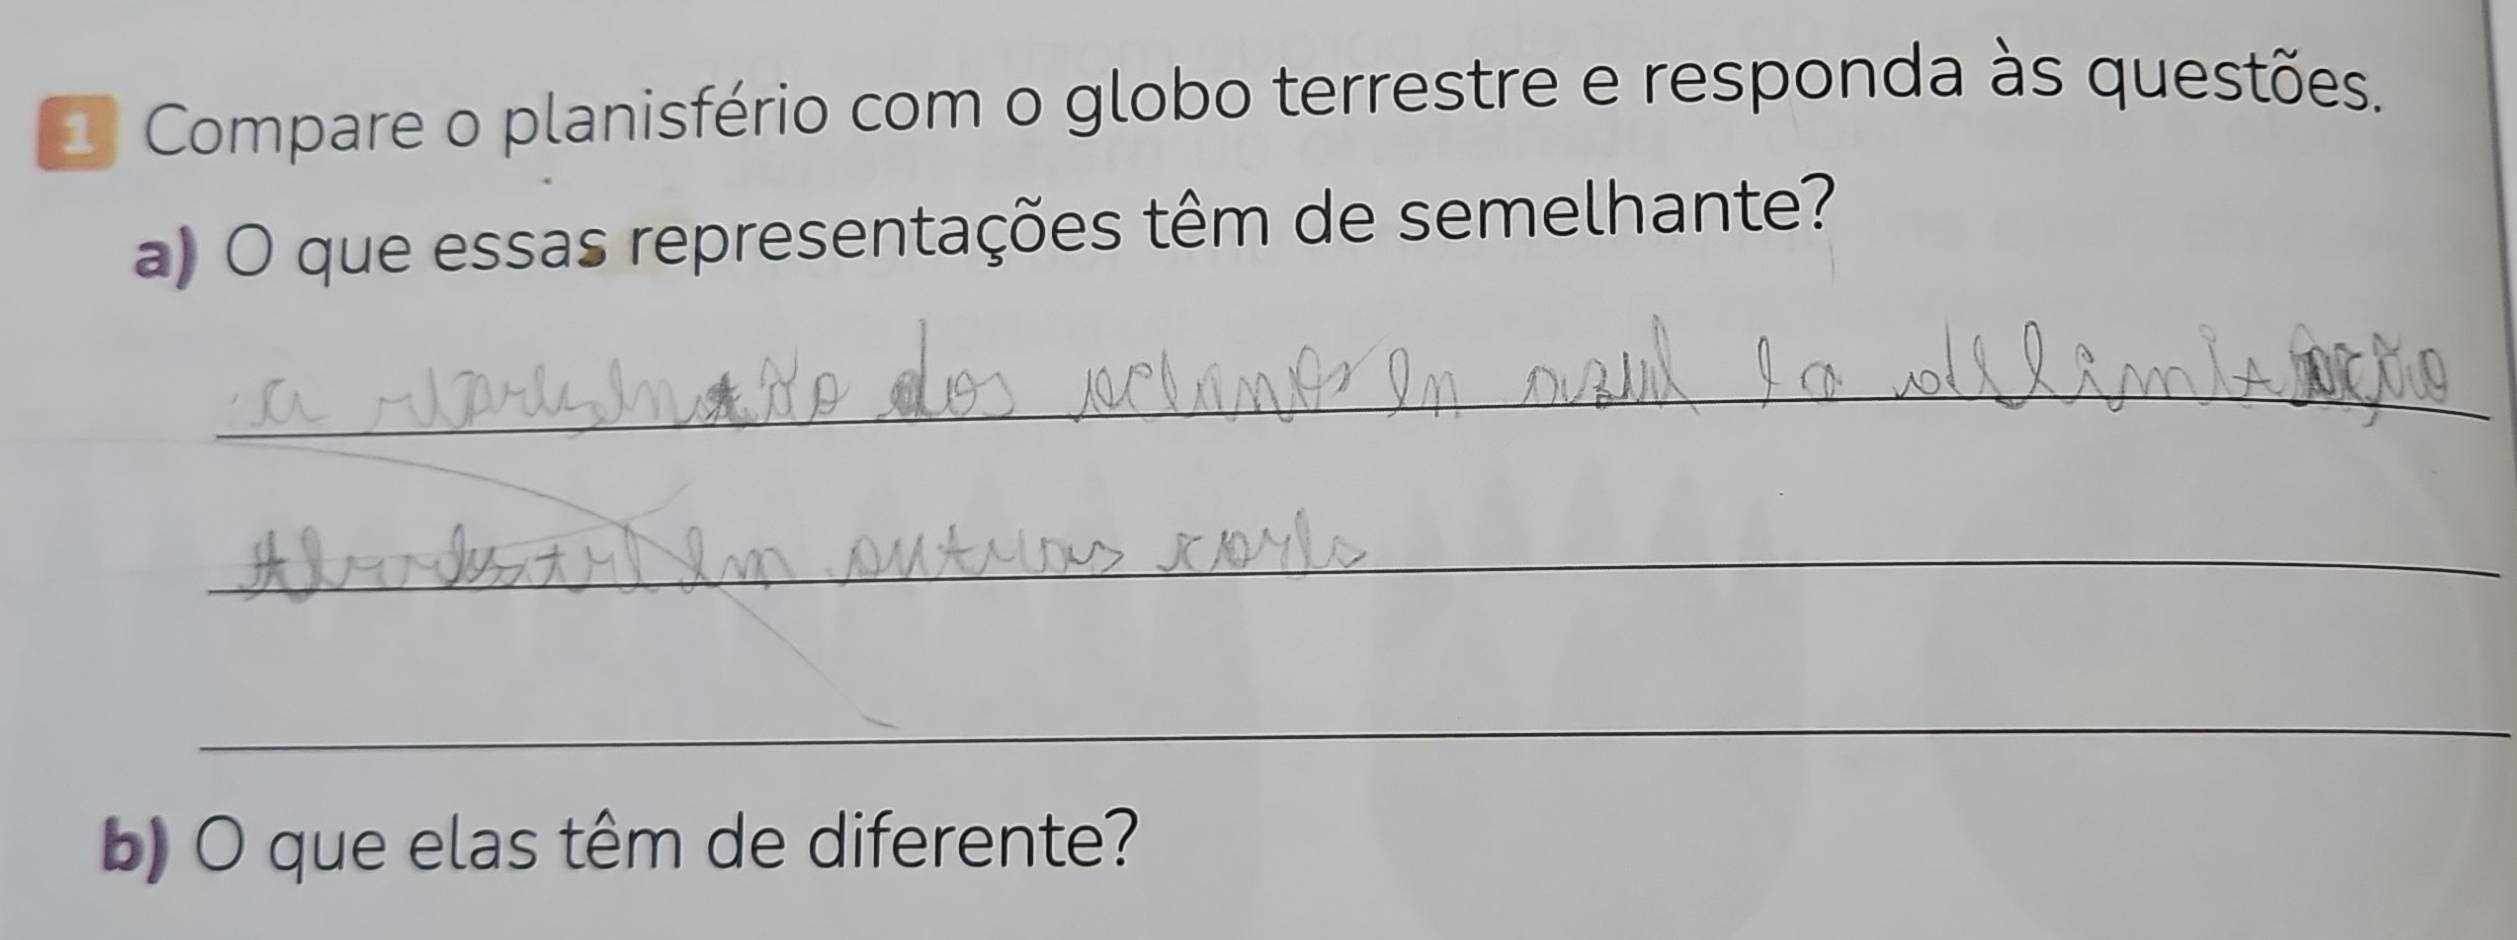 1 Compare o planisfério com o globo terrestre e responda às questões.
a) O que essas representações têm de semelhante?
a dos em azul e a
em outras cores
b) O que elas têm de diferente?